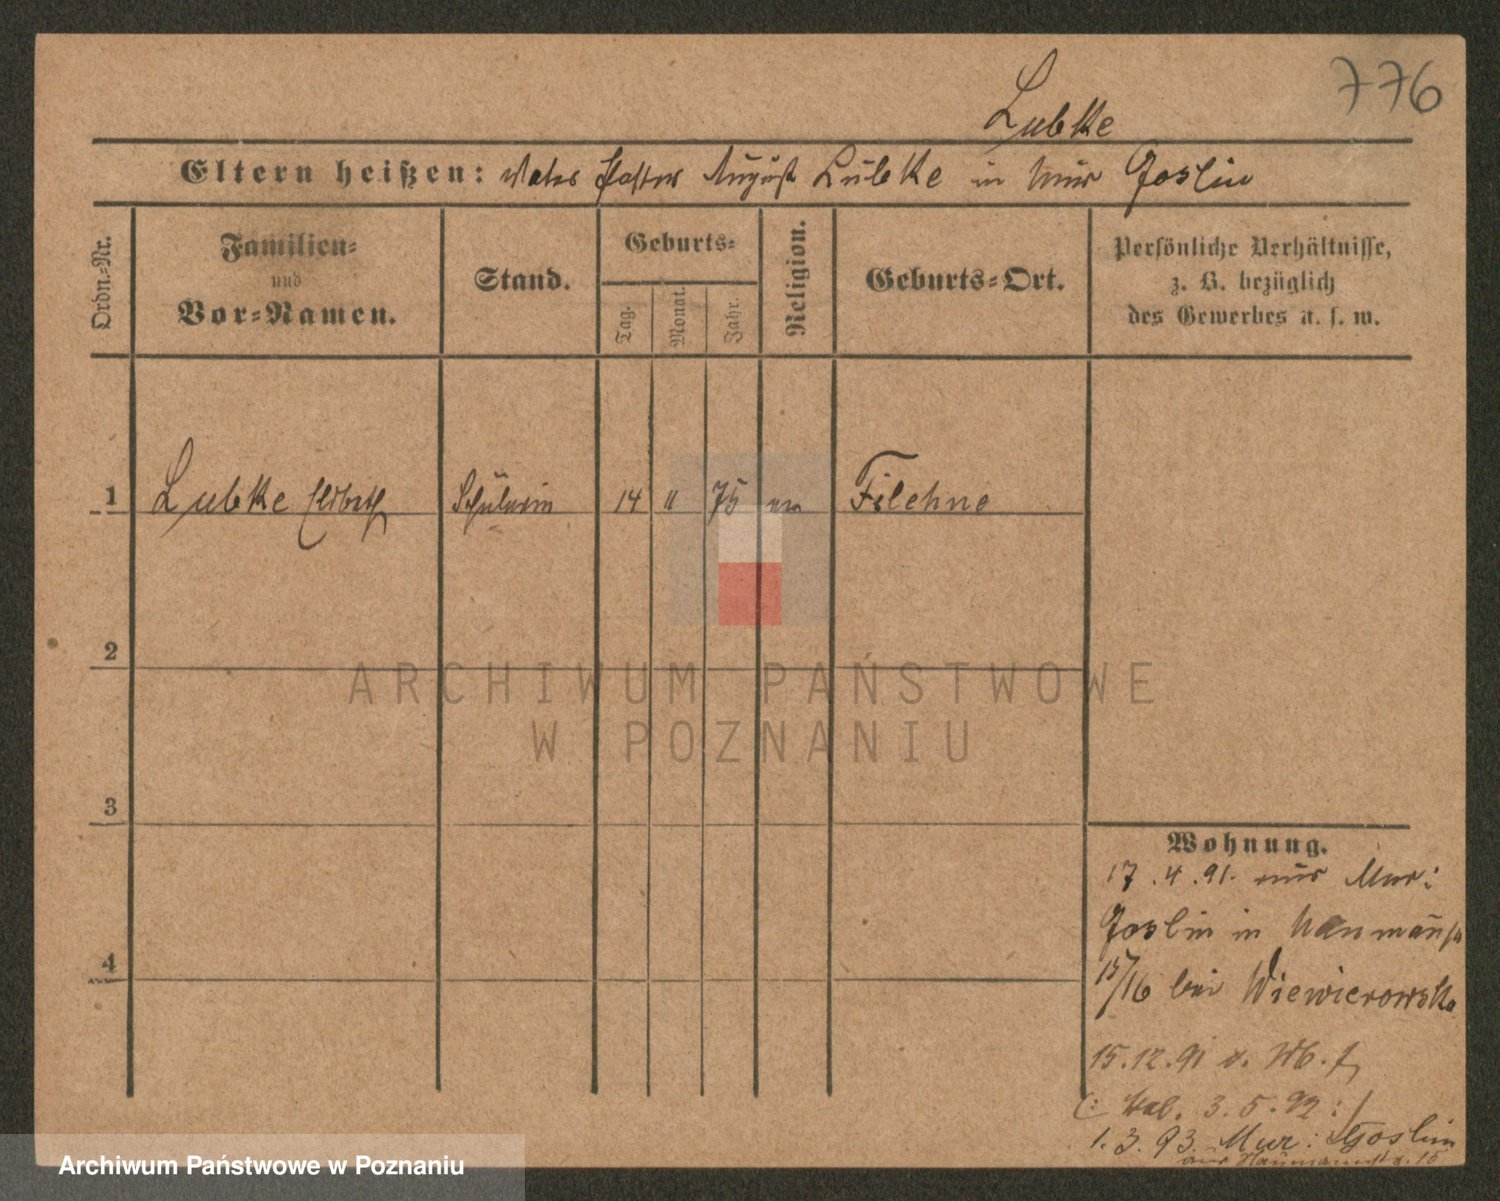 776
Lubke
Eltern heißen: Vater Pastor August Lübke in Mur Goslin
Ordn.-Nr.
Familien-
und
Vor-Namen.
Stand.
Geburts-
Tag.
Monat.
Jahr.
Religion.
Geburts-Ort.
Persönliche Verhältnisse,
z. B. bezüglich
des Gewerbes u. s. w.
1 Lubke Elsbeth Schülerin 14 11 75 ev Filehne
2
3
4
Wohnung.
17.4.91. aus Mur:
Goslin in Naumannstr
15/16 bei Wiewierowska
15.12.91 v.
3.5.92:/
1.3.93. Mur: Goslin
aus Naumannstr. 15
ARCHIWUM PAŃSTWOWE
W POZNANIU
Archiwum Państwowe w Poznaniu